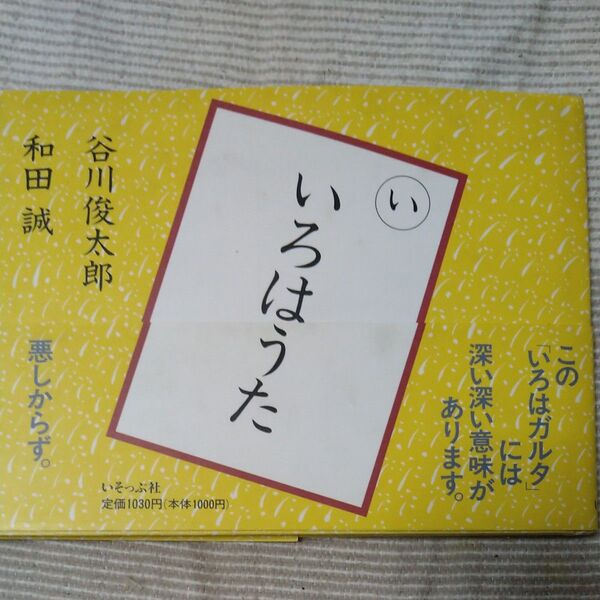 い
いろはうた
谷川俊太郎
和田 誠
この
「いろはガルタ」
には
深い深い意味が
あります。
悪しからず。
いそっぷ社
定価1030円(本体1000円)